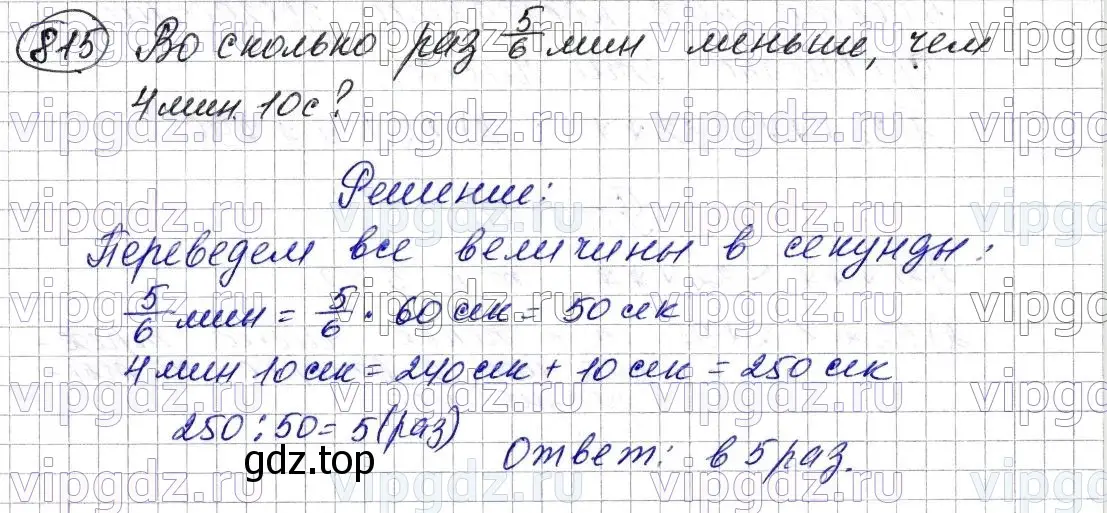 815 Во сколько раз 5/6 мин меньше, чем
4 мин. 10 с?
Решение:
Переведем все величины в секунды:
5/6 мин = 5/6 · 60 сек = 50 сек
4 мин 10 сек = 240 сек + 10 сек = 250 сек
250 : 50 = 5 (раз)
Ответ: в 5 раз.
gdz.top
vipgdz.ru